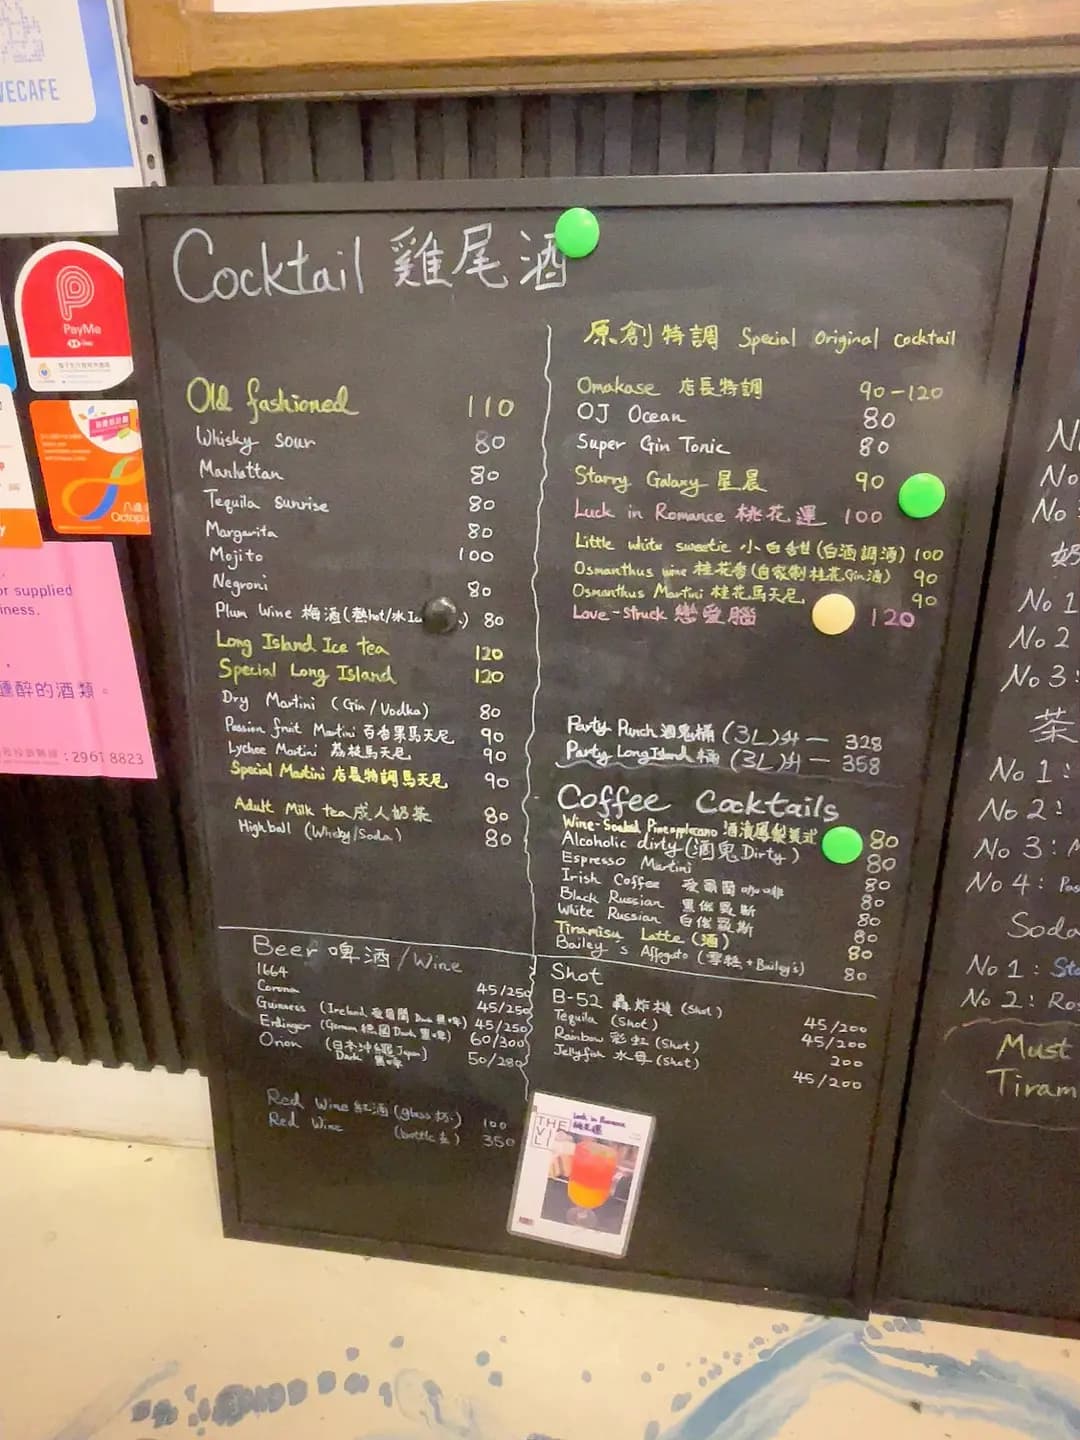 VECAFE
PayMe
Octopu
or supplied
iness.
醺醉的酒類。
: 2961 8823
Cocktail 雞尾酒
Old fashioned 110
Whisky sour 80
Manhattan 80
Tequila Sunrise 80
Margarita 80
Mojito 100
Negroni 80
Plum Wine 梅酒(熱hot/冰 80
Long Island Ice tea 120
Special Long Island 120
Dry Martini (Gin/Vodka) 80
Passion fruit Martini 百香果馬天尼 90
Lychee Martini 荔枝馬天尼 90
Special Martini 店長特調馬天尼 90
Adult Milk tea 成人奶茶 80
Highball (Whisky/Soda) 80
原創特調 Special Original Cocktail
Omakase 店長特調 90-120
OJ Ocean 80
Super Gin Tonic 80
Starry Galaxy 星晨 90
Luck in Romance 桃花運 100
Little white sweetie 小白甜(白酒調酒) 100
Osmanthus wine 桂花香(自家制桂花Gin酒) 90
Osmanthus Martini 桂花馬天尼 90
Love-Struck 戀愛腦 120
Party Punch 酒鬼桶 (3L)升 — 328
Party Long Island 桶 (3L)升 — 358
Coffee Cocktails
Wine-Soaked Pineapplecano 酒漬鳳梨美式 80
Alcoholic dirty (酒鬼Dirty) 80
Espresso Martini 80
Irish Coffee 愛爾蘭咖啡 80
Black Russian 黑俄羅斯 80
White Russian 白俄羅斯 80
Tiramisu Latte (酒) 80
Bailey's Affogato (雪糕+Bailey's) 80
Beer 啤酒/Wine
1664 45/250
Corona 45/250
Guinness (Ireland 愛爾蘭 Dark 黑啤) 45/250
Erdinger (German 德國 Dark 黑啤) 60/300
Orion (日本沖繩 Japan) 50/280
Dark 黑啤
Red Wine 紅酒 (glass 杯) 100
Red Wine (bottle 支) 350
Shot
B-52 轟炸機 (Shot) 45/200
Tequila (Shot) 45/200
Rainbow 彩虹 (Shot) 200
Jellyfish 水母 (Shot) 45/200
Luck in Romance
桃花運
THE
No
No
茶
No 1
No 2
No 3:
No 1:
No 2:
No 3:
No 4:
Soda
No 1:
No 2:
Must
Tiram